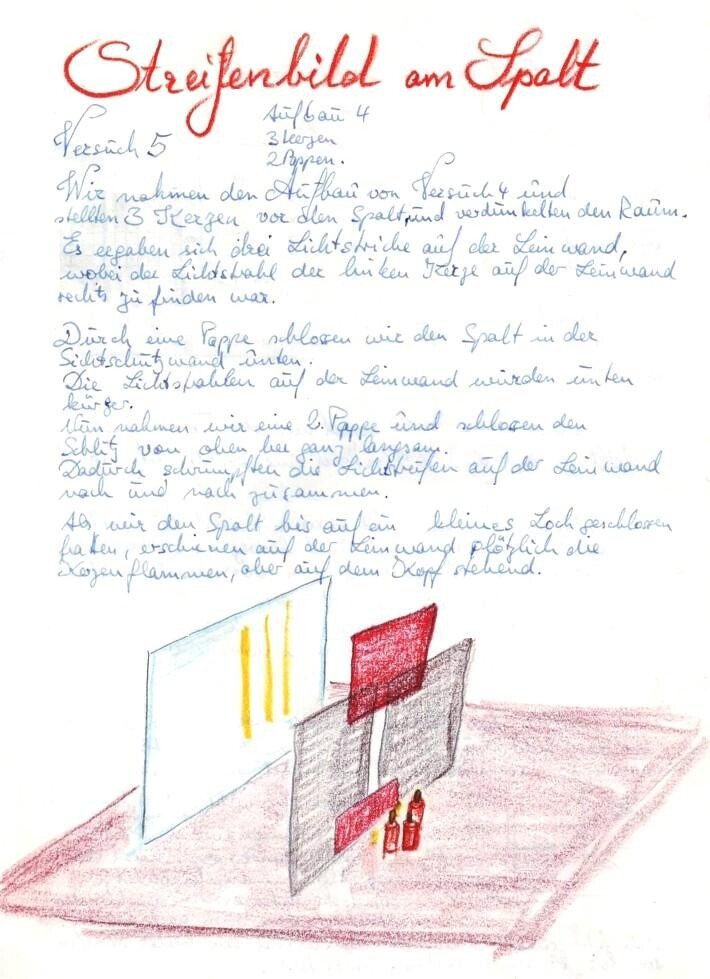 Streifenbild am Spalt
Aufbau 4
Versuch 5
3 Kerzen
2 Pappen.
Wir nahmen den Aufbau von Versuch 4 und
stellten 3 Kerzen vor den Spalt, und verdunkelten den Raum.
Es ergaben sich drei Lichtstriche auf der Leinwand,
wobei der Lichtstrahl der linken Kerze auf der Leinwand
rechts zu finden war.
Durch eine Pappe schlossen wir den Spalt in der
Sichtschutzwand unten.
Die Lichtstrahlen auf der Leinwand wurden unten
kürzer.
Nun nahmen wir eine 2. Pappe und schlossen den
Schlitz von oben her ganz langsam.
Dadurch schrumpften die Lichtstreifen auf der Leinwand
nach und nach zusammen.
Als wir den Spalt bis auf ein kleines Loch geschlossen
hatten, erschienen auf der Leinwand plötzlich die
Kerzenflammen, aber auf dem Kopf stehend.